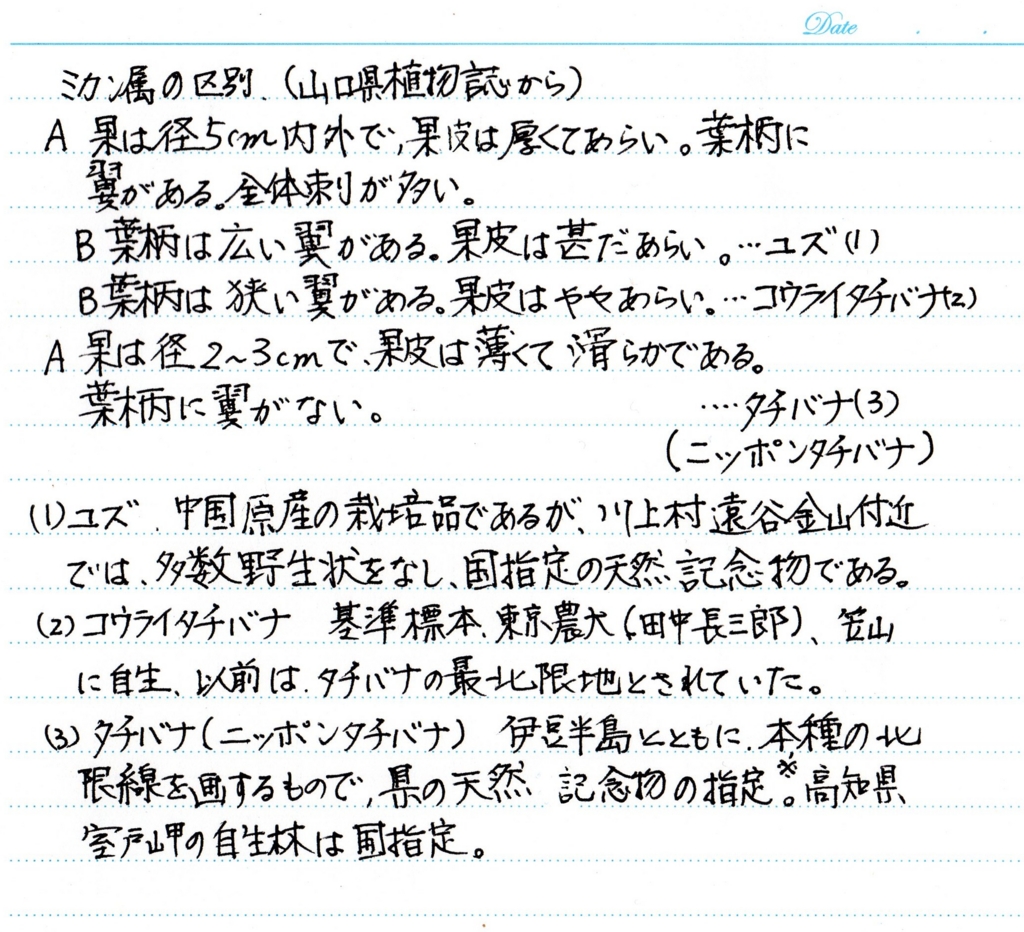 Date
ミカン属の区別.(山口県植物誌から)
A 果は径5cm内外で,果皮は厚くてあらい。葉柄に
翼がある。全体刺りが多い。
B 葉柄は広い翼がある。果皮は甚だあらい。…ユズ(1)
B 葉柄は狭い翼がある。果皮はややあらい。…コウライタチバナ(2)
A 果は径2~3cmで、果皮は薄くて滑らかである。
葉柄に翼がない。 ….タチバナ(3)
(ニッポンタチバナ)
(1)ユズ.中国原産の栽培品であるが、川上村遠谷金山付近
では、多数野生状をなし、国指定の天然記念物である。
(2)コウライタチバナ 基準標本、東京農大(田中長三郎)、笠山
に自生、以前は、タチバナの最北限地とされていた。
(3)タチバナ(ニッポンタチバナ) 伊豆半島とともに、本種の北
限線を画するもので,県の天然 記念物の指定※。高知県、
室戸岬の自生林は国指定。